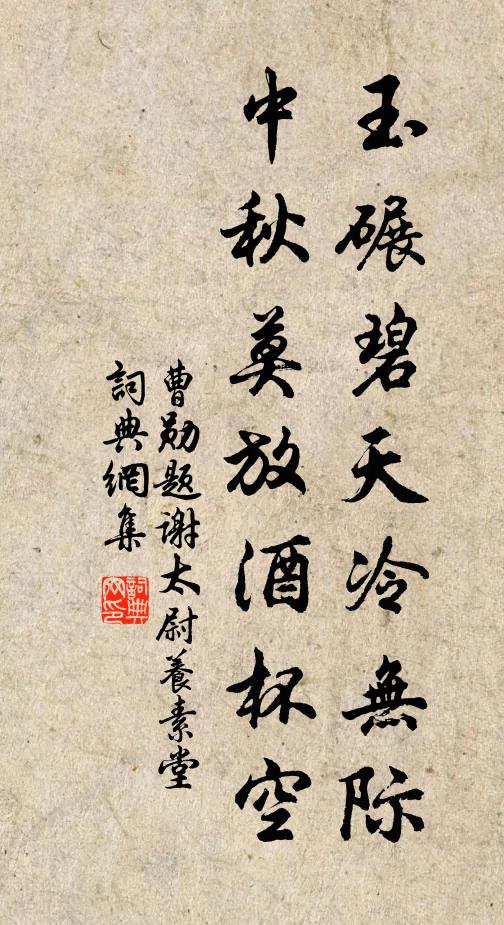 玉碾碧天冷無际
中秋莫放酒杯空
曹勋题謝太尉養素堂
詞典網集
詞典网印